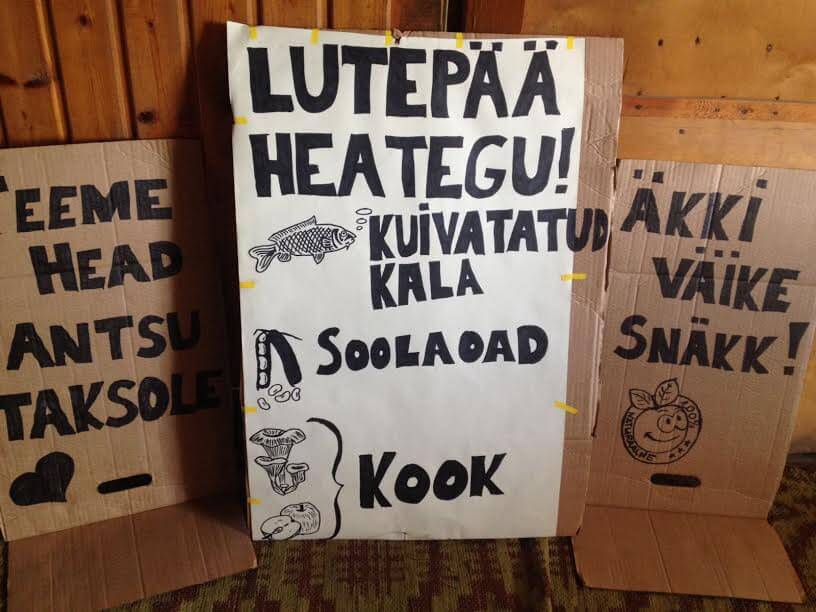 TEEME
HEAD
ANTSU
TAKSOLE
LUTEPÄÄ
HEATEGU!
KUIVATATUD
KALA
SOOLAOAD
KOOK
ÄKKI
VÄIKE
SNÄKK!
100%
NATURAALNE